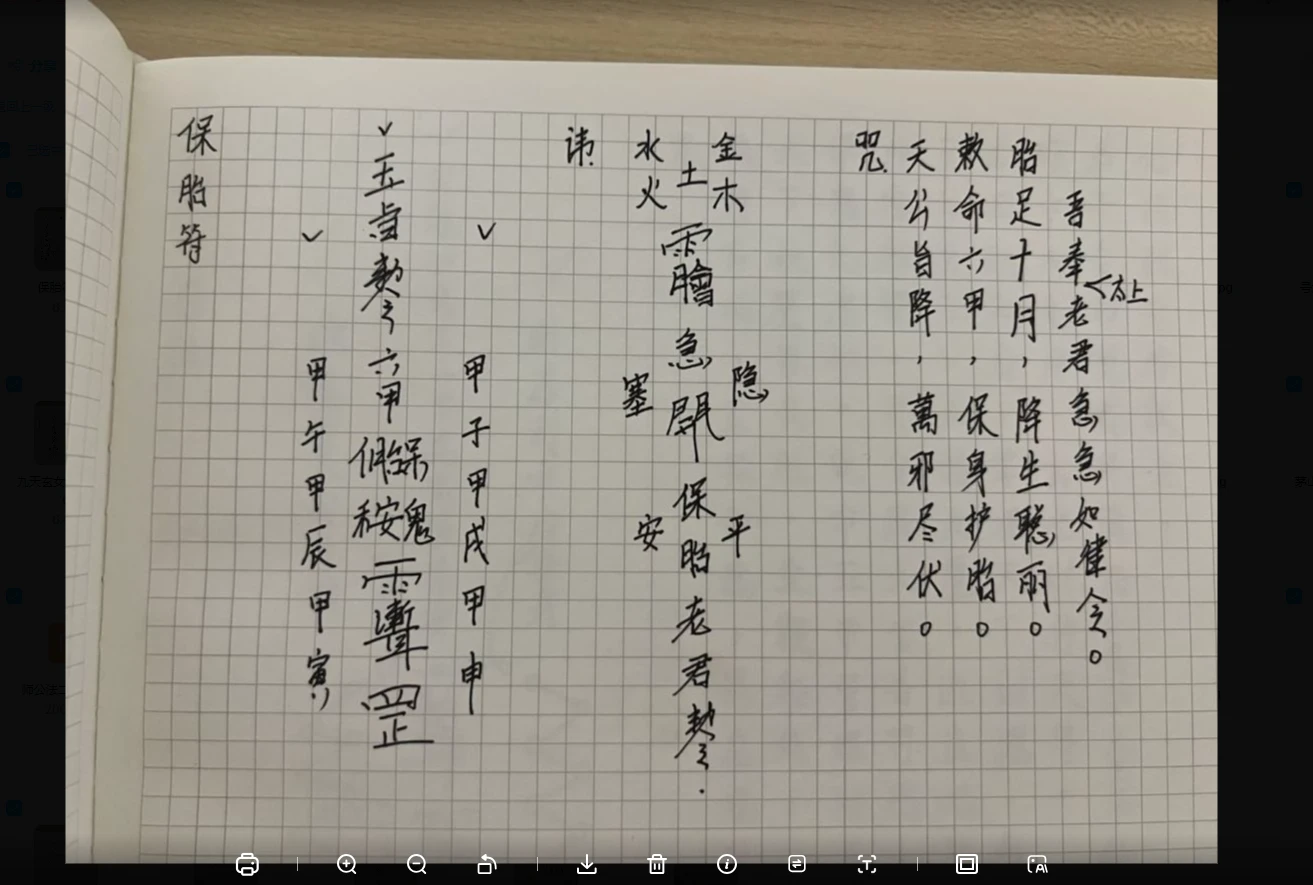 保胎符
甲午甲辰甲寅
六甲
甲子甲戌甲申
讳
水火
土
金木
急
保胎老君
塞
隐
安
平
咒
天公旨降，萬邪尽伏。
敕命六甲，保身护胎。
胎足十月，降生聪丽。
吾奉老君急急如律令。
太上